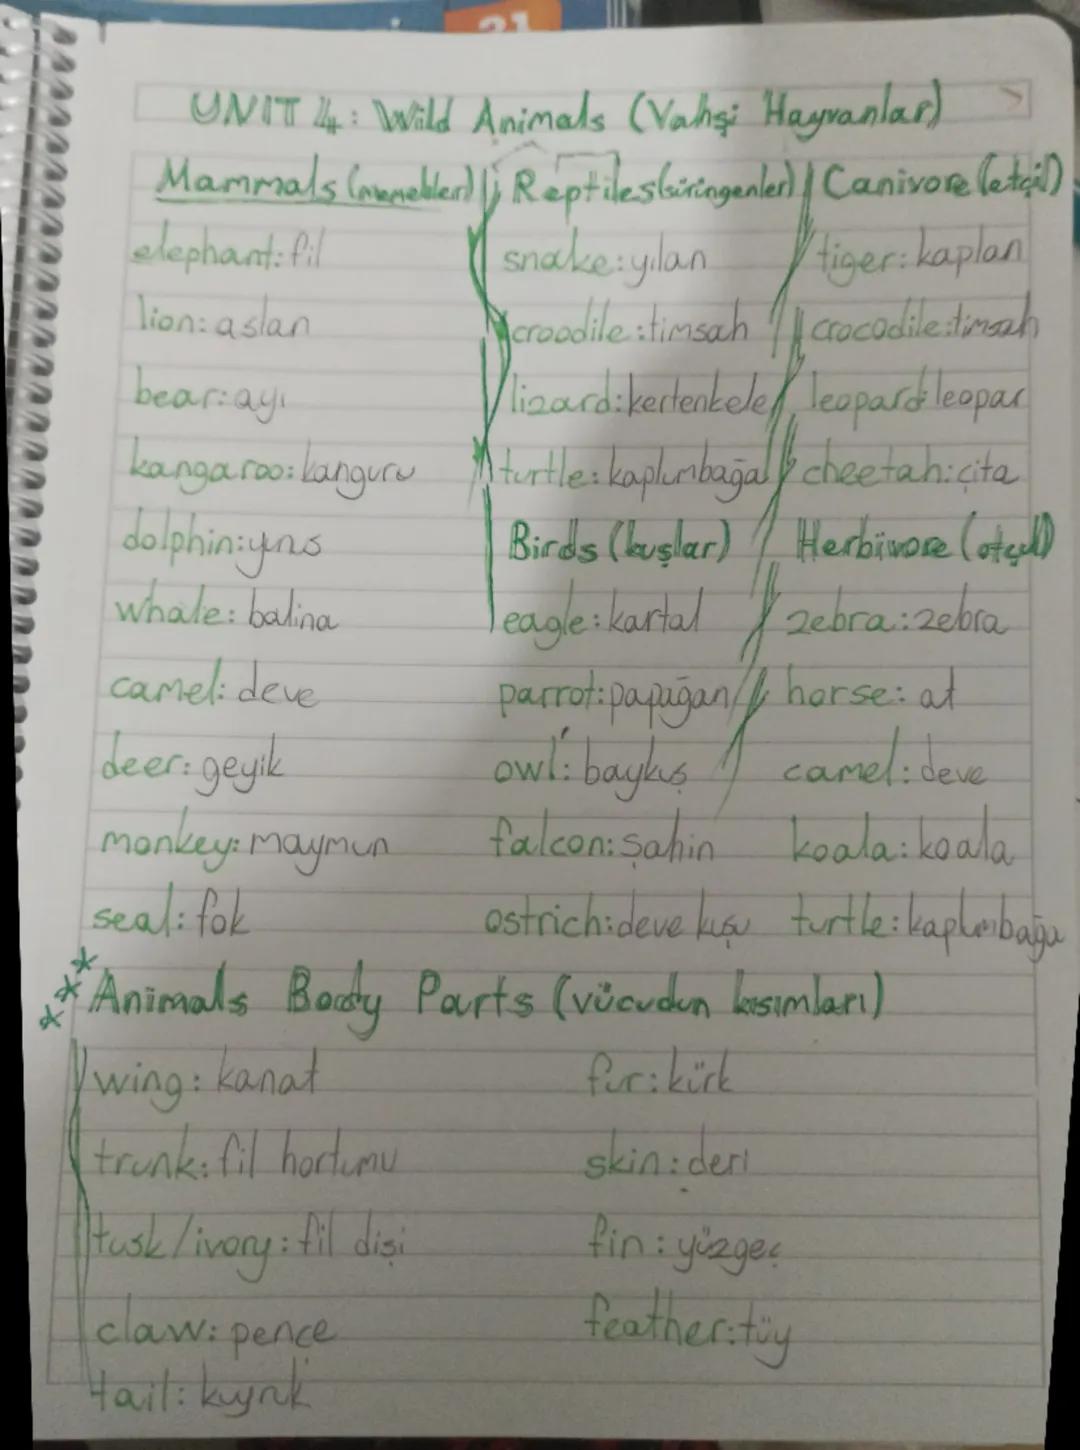 21
UNIT 4: Wild Animals (Vahşi Hayvanlar)
Mammals (memeliler)
elephant: fil
lion: aslan
bear: ayı
kangaroo: kanguru
dolphin: yns
whale: balina
camel: deve
deer: geyik
monkey: maymun
seal: fok
Reptiles (sürüngenler)
snake: yılan
croodile: timsah
lizard: kertenkele
turtle: kaplumbağa
Birds (kuşlar)
eagle: kartal
parrot: papağan
owl: baykuş
falcon: şahin
ostrich: deve kuşu
Canivore (etçil)
tiger: kaplan
crocodile: timsah
leopard: leopar
cheetah: çita
Herbivore (otçul)
zebra: zebra
horse: at
camel: deve
koala: koala
turtle: kaplumbağa
Animals Body Parts (vücudun kısımları)
wing: kanat
trunk: fil hortumu
tusk/ivory: fil dişi
claw: pençe
tail: kuyrk
fur: kürk
skin: deri
fin: yüzgeç
feather: tüy